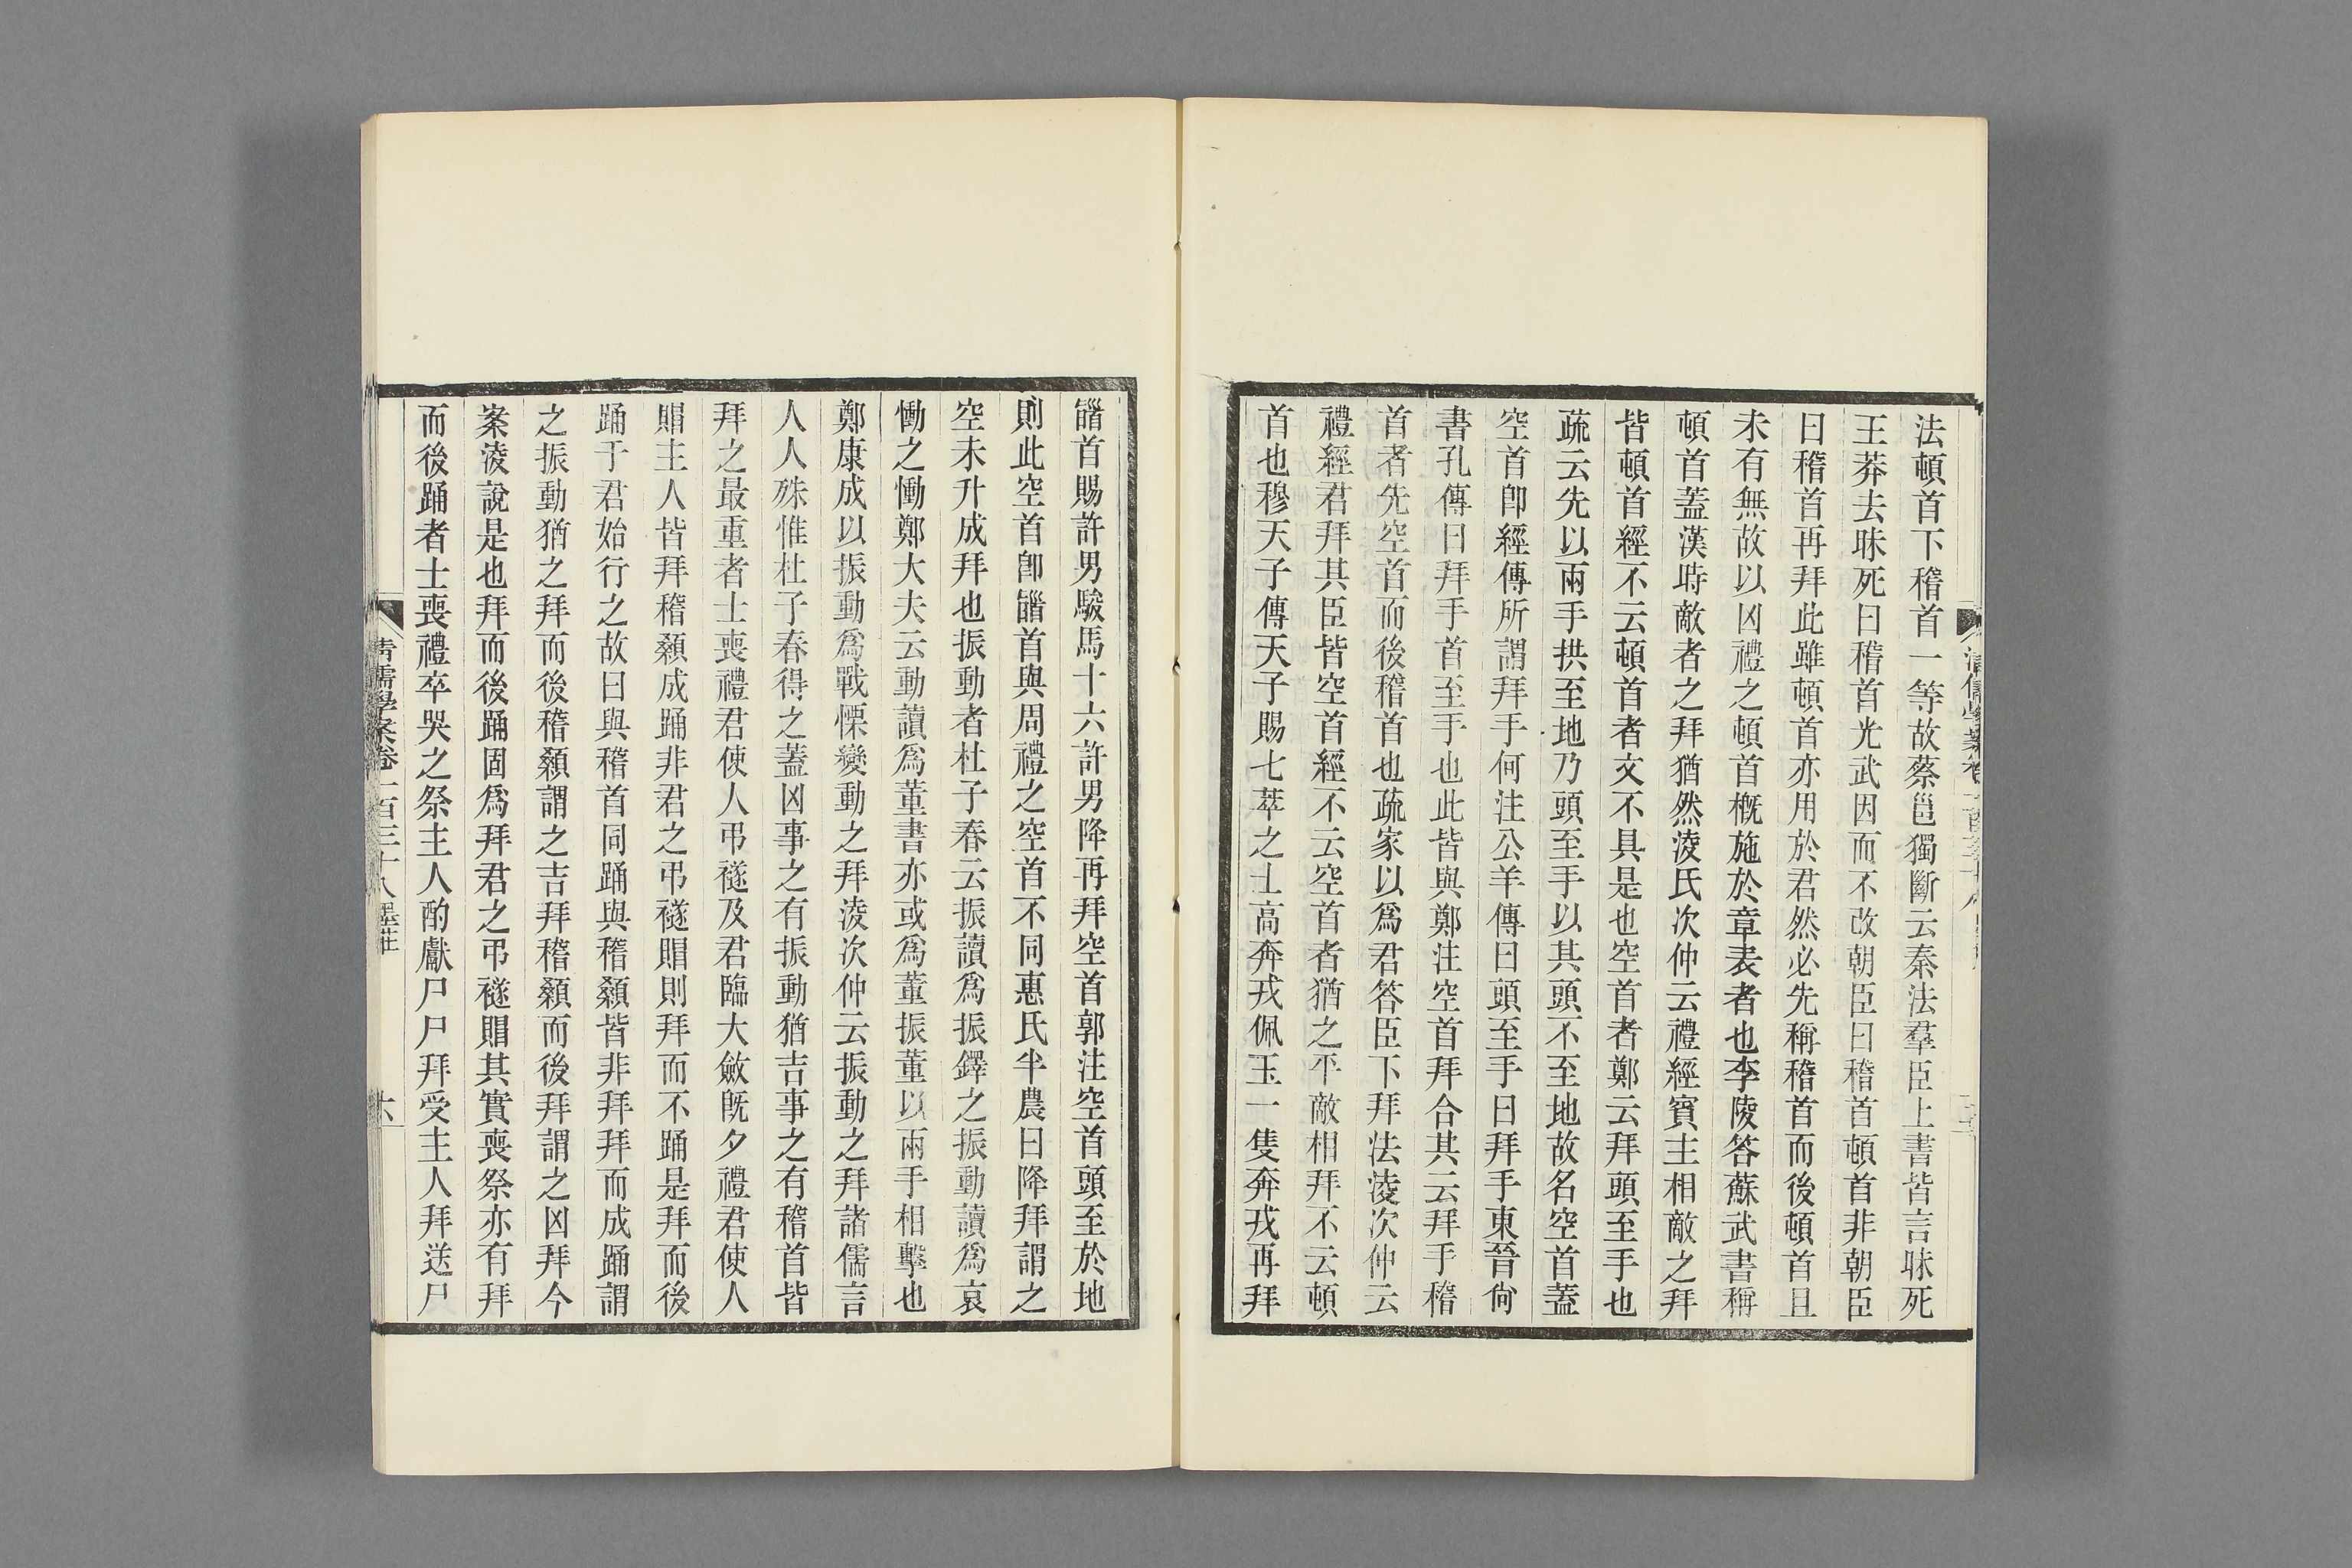 法頓首下稽首一等故蔡邕獨斷云秦法羣臣上書皆言昧死
王莽去昧死曰稽首光武因而不改朝臣曰稽首頓首非朝臣
曰稽首再拜此雖頓首亦用於君然必先稱稽首而後頓首且
未有無故以凶禮之頓首概施於章表者也李陵答蘇武書稱
頓首蓋漢時敵者之拜猶然淩氏次仲云禮經賓主相敵之拜
皆頓首經不云頓首者文不具是也空首者鄭云拜頭至手也
疏云先以兩手拱至地乃頭至手以其頭不至地故名空首蓋
空首卽經傳所謂拜手何注公羊傳曰頭至手曰拜手東晉尙
書孔傳曰拜手首至手也此皆與鄭注空首拜合其云拜手稽
首者先空首而後稽首也疏家以爲君答臣下拜法淩次仲云
禮經君拜其臣皆空首經不云空首者猶之平敵相拜不云頓
首也穆天子傳天子賜七萃之士高奔戎佩玉一隻奔戎再拜
䭫首賜許男駿馬十六許男降再拜空首郭注空首頭至於地
則此空首卽䭫首與周禮之空首不同惠氏半農曰降拜謂之
空未升成拜也振動者杜子春云振讀爲振鐸之振動讀爲哀
慟之慟鄭大夫云動讀爲董書亦或爲董振董以兩手相擊也
鄭康成以振動爲戰慄變動之拜淩次仲云振動之拜諸儒言
人人殊惟杜子春得之蓋凶事之有振動猶吉事之有稽首皆
拜之最重者士喪禮君使人弔襚及君臨大斂旣夕禮君使人
賵主人皆拜稽顙成踊非君之弔襚賵則拜而不踊是拜而後
踊于君始行之故曰與稽首同踊與稽顙皆非拜拜而成踊謂
之振動猶之拜而後稽顙謂之吉拜稽顙而後拜謂之凶拜今
案淩說是也拜而後踊固爲拜君之弔襚賵其實喪祭亦有拜
而後踊者士喪禮卒哭之祭主人酌獻尸尸拜受主人拜送尸
清儒學案卷一百三十八墨莊
六